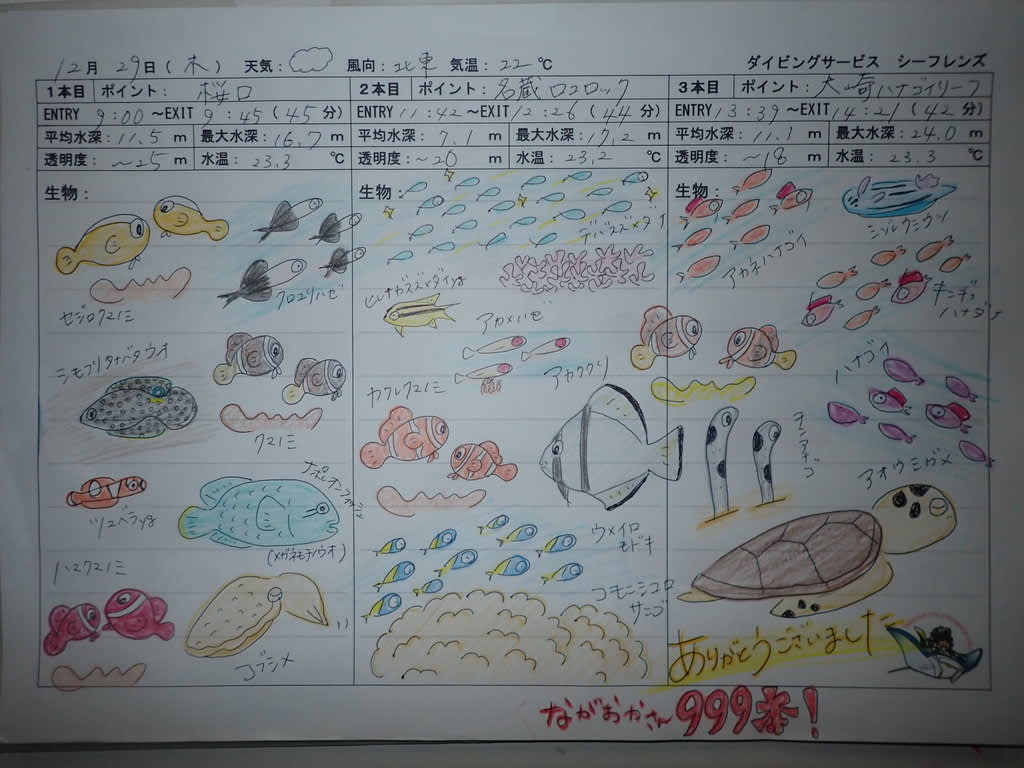 12月 29日(木) 天気: 風向:北東 気温:22℃ ダイビングサービス シーフレンズ
1本目 ポイント: 桜口
ENTRY 9:00 ~EXIT 9:45 (45分)
平均水深:11.5 m 最大水深:16.7 m
透明度: ~25 m 水温: 23.3 ℃
生物:
セジロクマノミ
クロユリハゼ
シモフリタナバタウオ
クマノミ
ツユベラyg
ナポレオンフィッシュ
(メガネモチノウオ)
ハマクマノミ
コブシメ
2本目 ポイント: 名蔵ロコロック
ENTRY 11:42 ~EXIT 12:26 (44分)
平均水深: 7.1 m 最大水深: 17.2 m
透明度:~20 m 水温: 23.2 ℃
生物:
デバスズメダイ
ヒレナガスズメダイyg
アカメハゼ
カクレクマノミ
アカククリ
ウメイロ
モドキ
コモンシコロ
サンゴ
3本目 ポイント: 大崎ハナゴイリーフ
ENTRY 13:39 ~EXIT 14:21 (42分)
平均水深: 11.1 m 最大水深: 24.0 m
透明度: ~18 m 水温: 23.3 ℃
生物:
ミゾレウミウシ
アカネハナゴイ
キンギョ
ハナダイ
ハナゴイ
チンアナゴ
アオウミガメ
ありがとうございました
ながおかさん 999本!